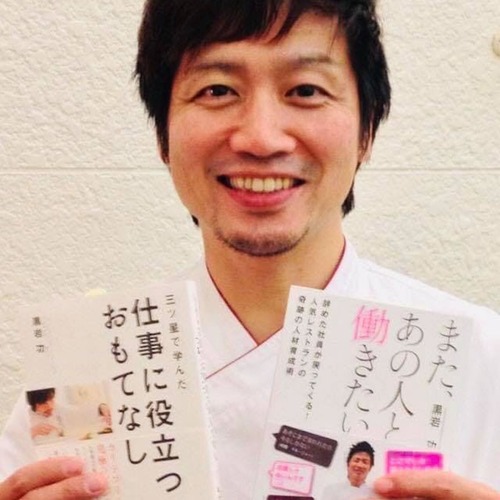 三ツ星で学んだ
仕事に役立つ
おもてなし
黒岩 功
また、
あの人と
働きたい
黒岩 功
辞めた社員が戻ってくる!
人気レストランの
奇跡の人材育成術